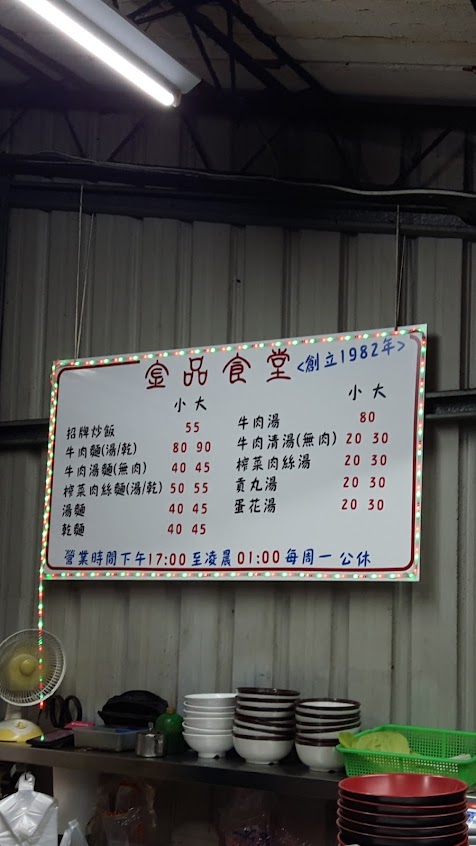 壹品食堂 <創立1982年>
小 大
招牌炒飯 55
牛肉麵(湯/乾) 80 90
牛肉湯麵(無肉) 40 45
榨菜肉絲麵(湯/乾) 50 55
湯麵 40 45
乾麵 40 45
小 大
牛肉湯 80
牛肉清湯(無肉) 20 30
榨菜肉絲湯 20 30
貢丸湯 20 30
蛋花湯 20 30
營業時間下午17:00至凌晨01:00每周一 公休